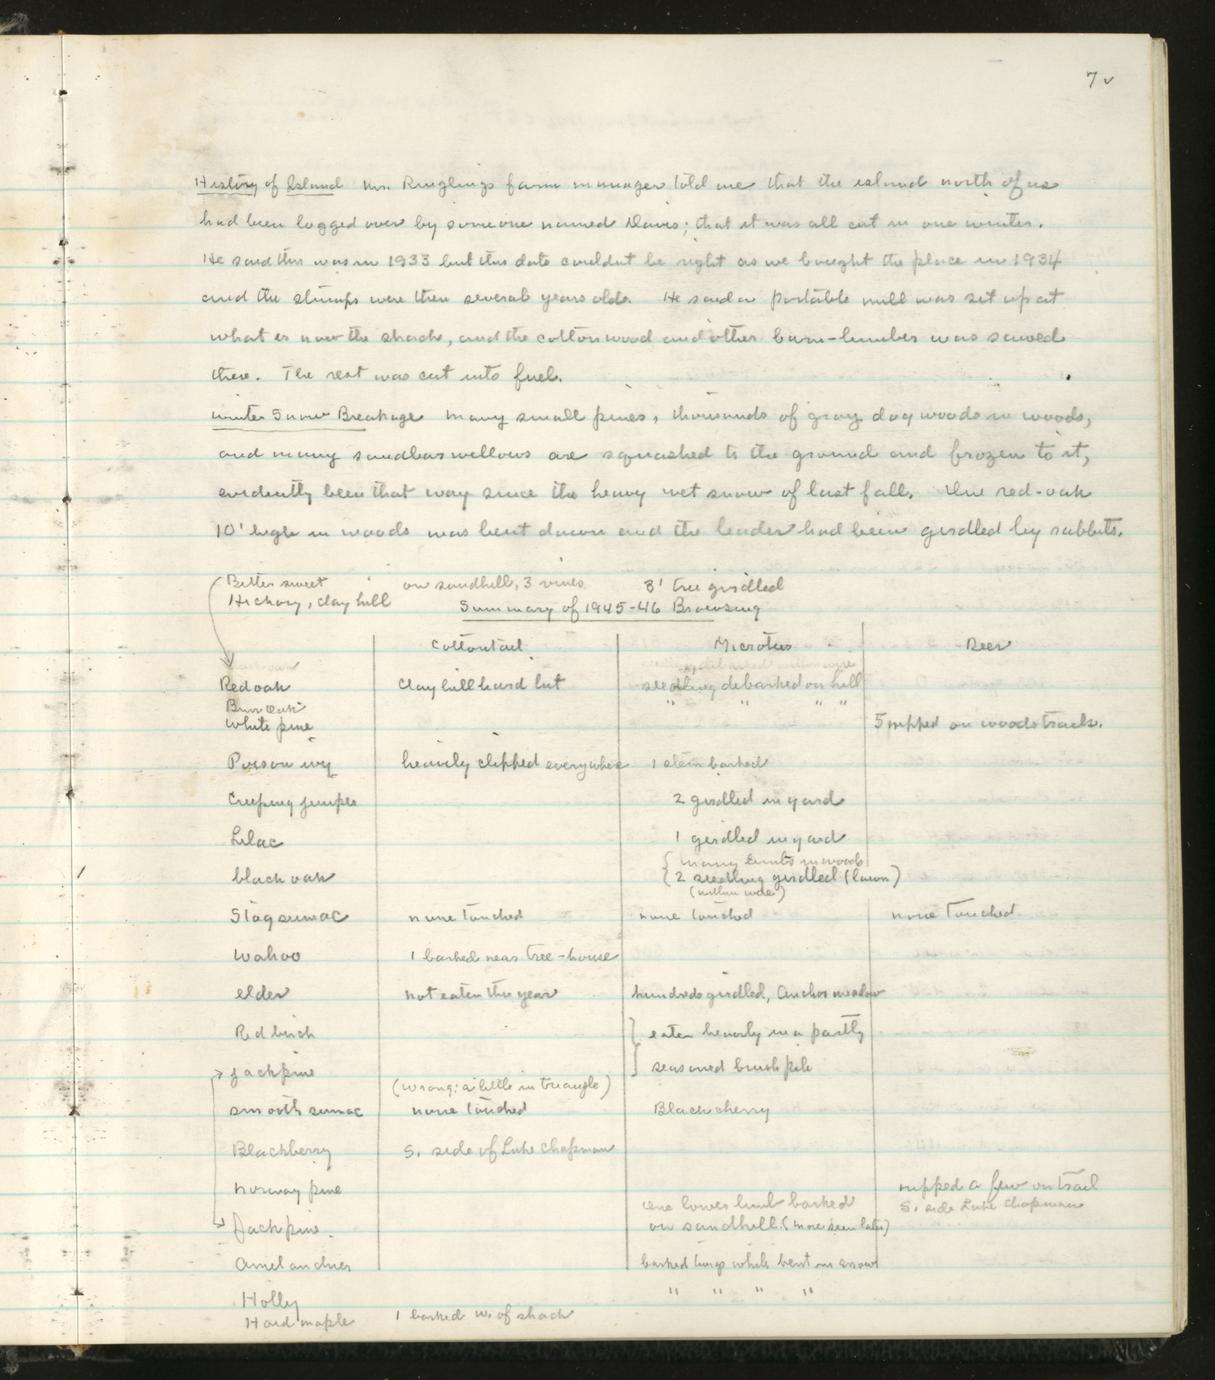 7v
History of Island Mr. Ringlings farm manager told me that the island north of us
had been logged over by someone named Davis; that it was all cut in one winter.
He said this was in 1933 but this date couldnt be right as we bought the place in 1934
and the stumps were then several years old. He said a portable mill was set up at
what is now the shack, and the cottonwood and other barn-lumber was sawed
there. The rest was cut into fuel.
Winter Snow Breakage Many small pines, thousands of gray dogwoods in woods,
and many sandbar willows are squashed to the ground and frozen to it,
evidently been that way since the heavy wet snow of last fall. One red-oak
10' high in woods was bent down and the leader had been girdled by rabbits.
Bittersweet on sandhill, 3 vines 3' tree girdled
Hickory, clay hill
Summary of 1945-46 Browsing
Cottontail Microtus Deer
Red oak clay hill hard hit seedling debarked on hill
Bur oak " " " "
White pine 5 nipped on woods track.
Poison ivy heavily clipped everywhere 1 stem barked
Creeping juniper 2 girdled in yard
Lilac 1 girdled in yard
many limbs in woods
black oak 2 seedling girdled (lawn)
(within wire)
Stag sumac none touched none touched none touched
Wahoo 1 barked near tree-house
elder not eaten this year hundreds girdled, Anchor meadow
Red birch eaten heavily in a partly
Jackpine seasoned brush pile
(wrong: a little in triangle)
smooth sumac none touched Black cherry
Blackberry S. side of Lake Chapman
Norway pine nipped a few on trail
S. side Lake Chapman
one lower limb barked
Jackpine. on sandhill. (more seen later)
Amelanchier barked twigs while bent in snow
Holly " " " "
Hard maple 1 barked w. of shack